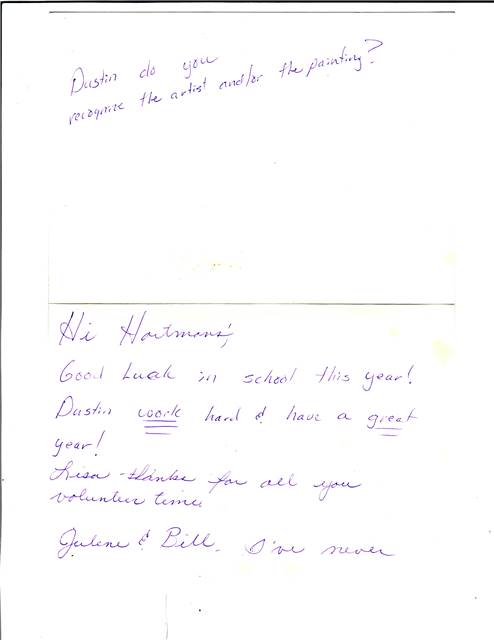 Dustin do you
recognize the artist and/or the painting?
Hi Hartmans',
Good Luck in school this year!
Dustin work hard & have a great
year!
Lisa thanks for all you
volunteer time.
Julene & Bill. I've never